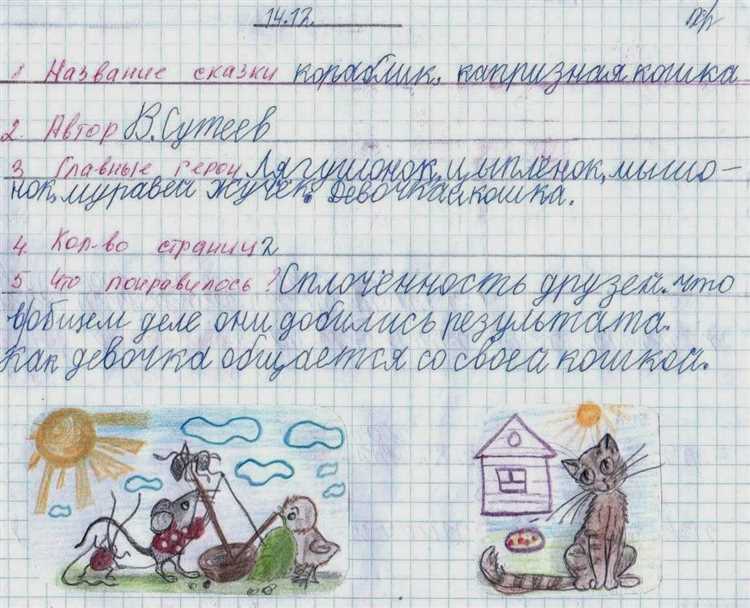 14.12.
1. Название сказки кораблик. капризная кошка
2. Автор В. Сутеев
3. Главные герои Лягушонок, цыплёнок, мышо-
нок, муравей жучёк. Девочка и кошка.
4. Кол-во страниц 2
5. Что понравилось? Сплочённость друзей. что
в общем деле они добились результата.
Как девочка общается со своей кошкой.